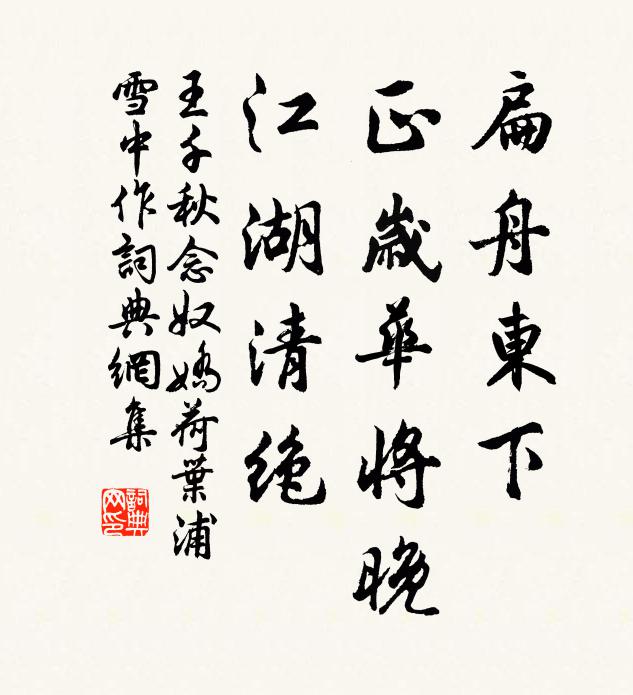 扁舟東下
正歲華將晚
江湖清絶
王千秋念奴嬌荷葉浦
雪中作詞典網集
詞典网印